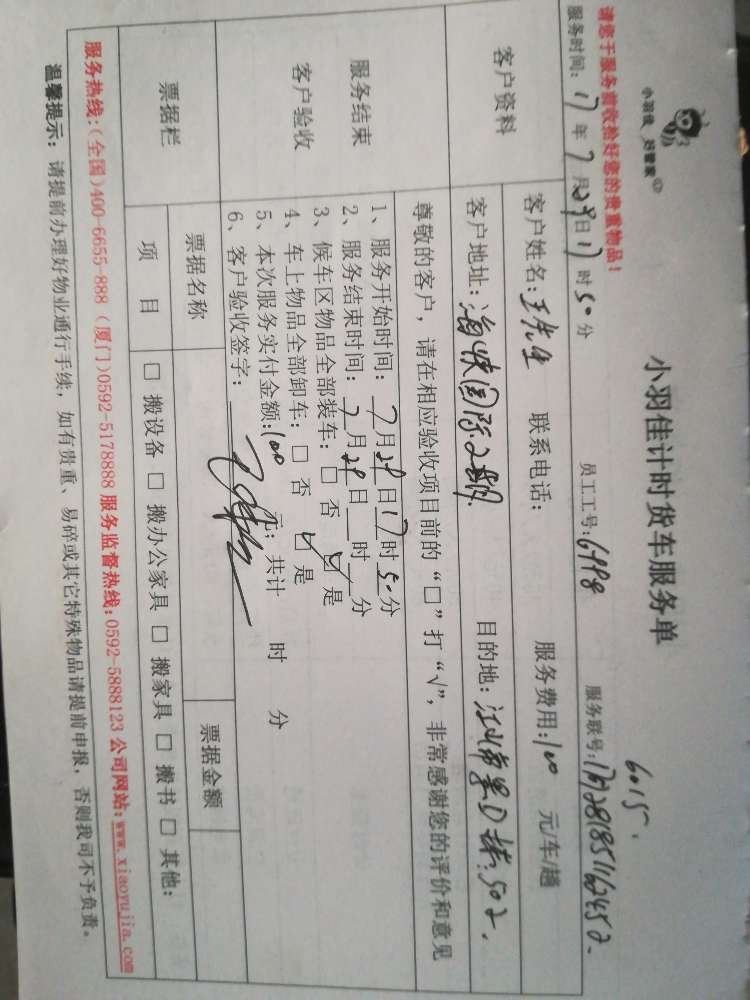 小羽佳 好管家
小羽佳计时货车服务单
6015.
请您于服务前收拾好您的贵重物品!
服务时间: 17 年 7 月 29 日 17 时 50 分 员工工号: 6998 服务联号:
客户资料
客户姓名: 王先生 联系电话: 服务费用: 100 元/车/趟
客户地址: 国际 目的地: D栋502.
服务结束
客户验收
尊敬的客户,请在相应验收项目前的“□”打“√”,非常感谢您的评价和意见
1、服务开始时间: 7 月 29 日 17 时 50 分
2、服务结束时间: 7 月 29 日 时 分
3、候车区物品全部装车: □ 否 ☑ 是
4、车上物品全部卸车: □ 否 ☑ 是
5、本次服务实付金额: 100 元; 共计 时 分
6、客户验收签字:
票据栏
票据名称 票据金额
项 目 □ 搬设备 □ 搬办公家具 □ 搬家具 □ 搬书 □ 其他:
服务热线:(全国)400-6655-888 (厦门)0592-5178888 服务监督热线:0592-5888123 公司网站:www.xiaoyujia.com
温馨提示: 请提前办理好物业通行手续, 如有贵重、易碎或其它特殊物品请提前申报, 否则我司不予负责。